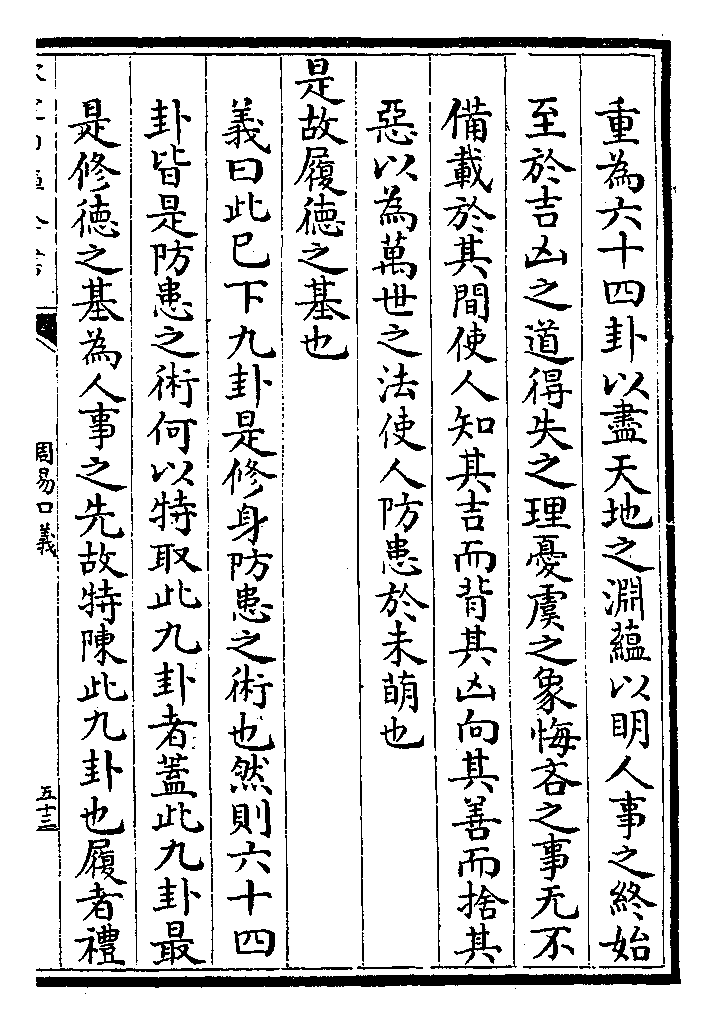 重為六十四卦以盡天地之淵蘊以明人事之終始
至於吉凶之道得失之理憂虞之象悔吝之事无不
備載於其間使人知其吉而背其凶向其善而捨其
惡以為萬世之法使人防患於未萌也
是故履德之基也
義曰此已下九卦是修身防患之術也然則六十四
卦皆是防患之術何以特取此九卦者蓋此九卦最
是修德之基為人事之先故特陳此九卦也履者禮
周易口義
五十三